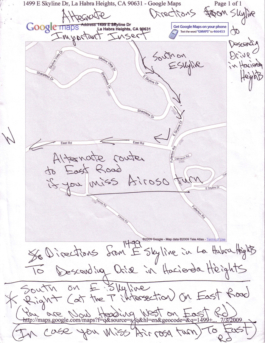 1499 E Skyline Dr, La Habra Heights, CA 90631 - Google Maps Page 1 of 1
Alternate Directions from Skyline
to
Descending
Drive
in Hacienda
Heights
Google maps
Address 1499 E Skyline Dr
La Habra Heights, CA 90631
Get Google Maps on your phone
Important Insert
South on
E Skyline
N
East Rd
East Rd
Alternate route
to East Road
if you miss Airoso turn
©2009 Google - Map data ©2009 Tele Atlas
Directions from 1499 E Skyline in La Habra Heights
To Descending Drive in Hacienda Heights
South on E Skyline
* Right (at the T intersection) on East Road
(You are Now Heading West on East Rd)
(In case you miss Airoso turn) To East
Rd